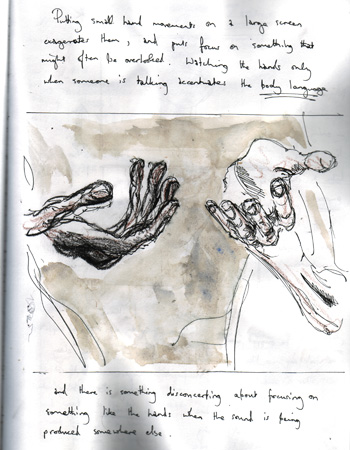 Putting small hand movements on a large screen
exagerates them, and puts focus on something that
might often be overlooked. Watching the hands only
when someone is talking accentuates the body language
and there is something disconcerting about focusing on
something like the hands when the sound is being
produced somewhere else.